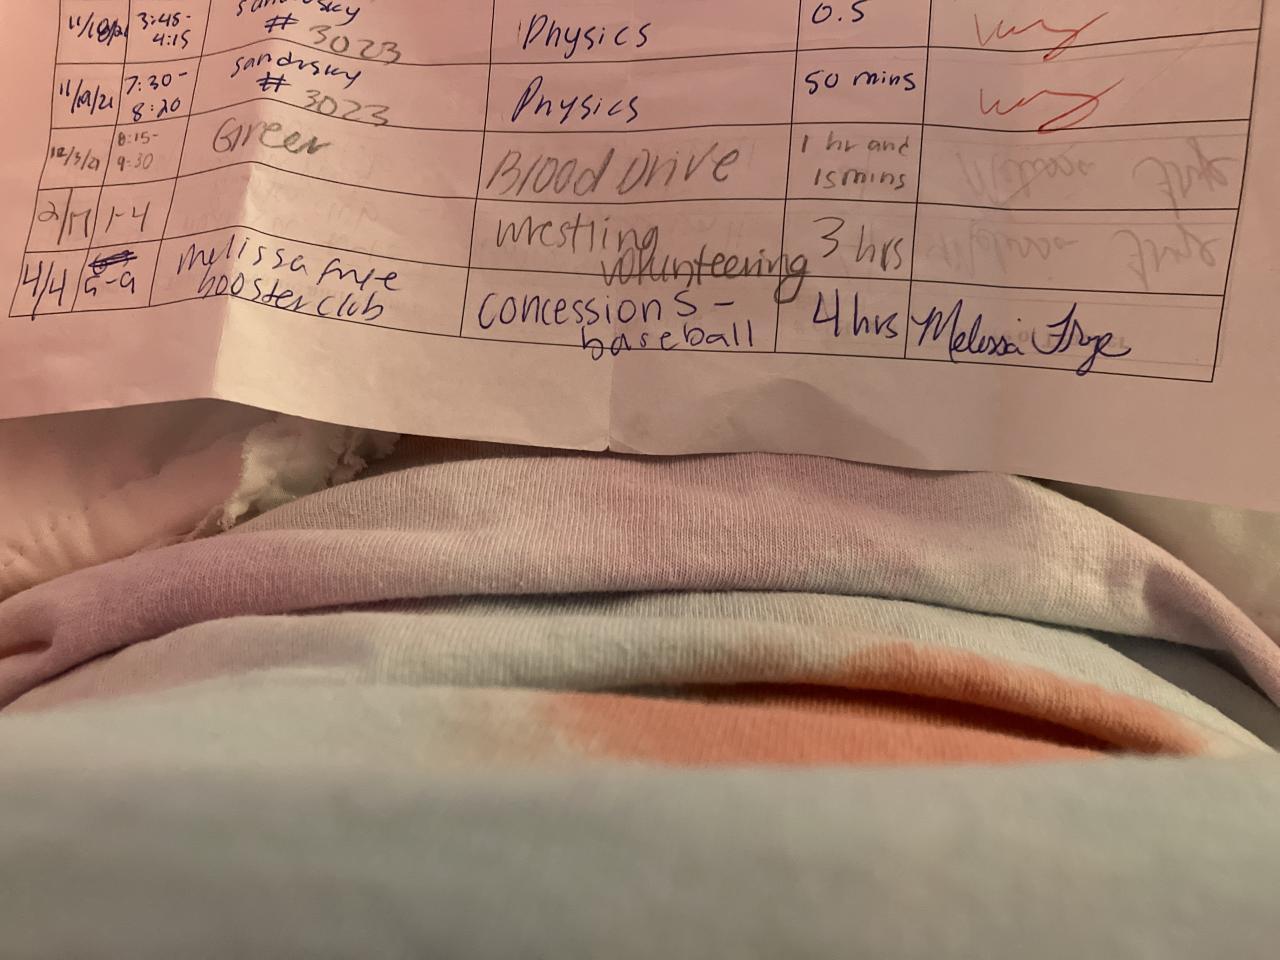 3:45- # 3023 Physics 0.5
4:15
11/19/21 7:30- sandusky Physics 50 mins
8:20 # 3023
12/3/21 8:15- Green Blood Drive 1 hr and
9:30 15 mins
2/17 1-4 wrestling 3 hrs
volunteering
4/4 5-9 melissa frye concessions - 4 hrs Melissa Frye
booster club baseball